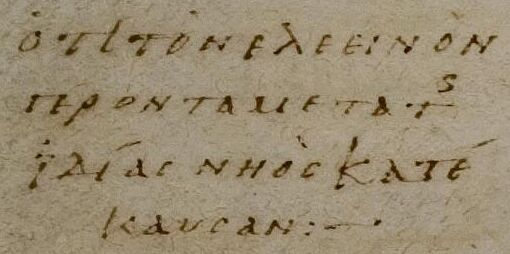 ὅτι τὸν ἐλεεινὸν
γέροντα μετα τς
ἰδίας νηὸς κατέ
καυσαν:—